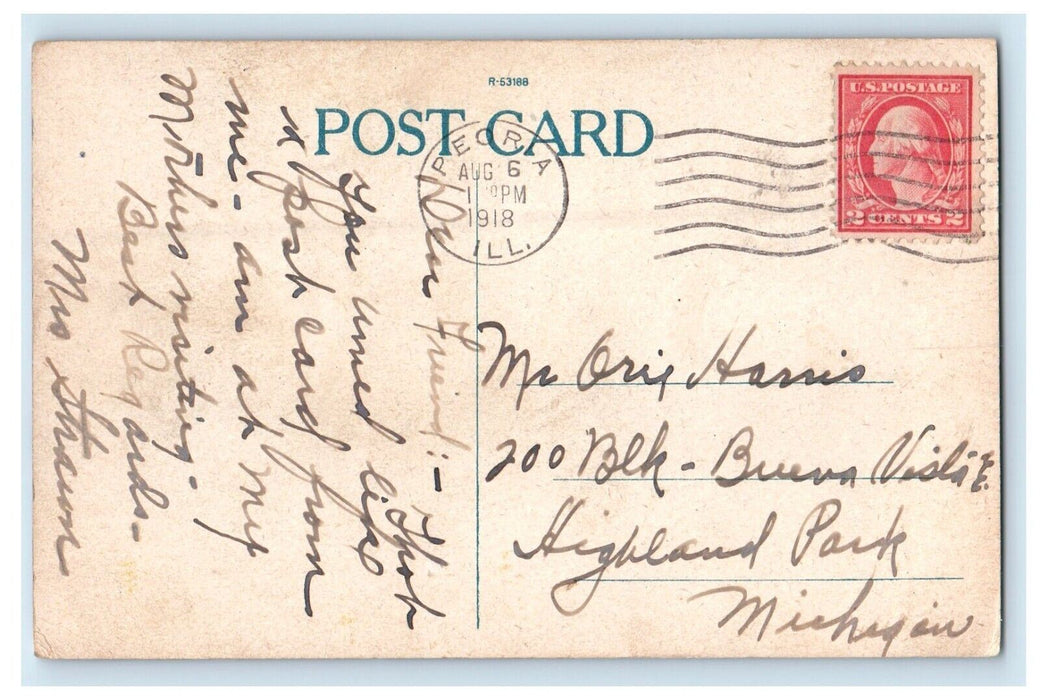 R-53188
POST CARD
U.S. POSTAGE
2 CENTS 2
PEORIA
AUG 6
PM
1918
ILL.
Dear Friend:- Thot
You wned like
a post card from
me - am at my
Mothers visiting -
Best Regards -
Mrs
Mr Orig Harris
200 Blk - Buena Vista E.
Highland Park
Michigan